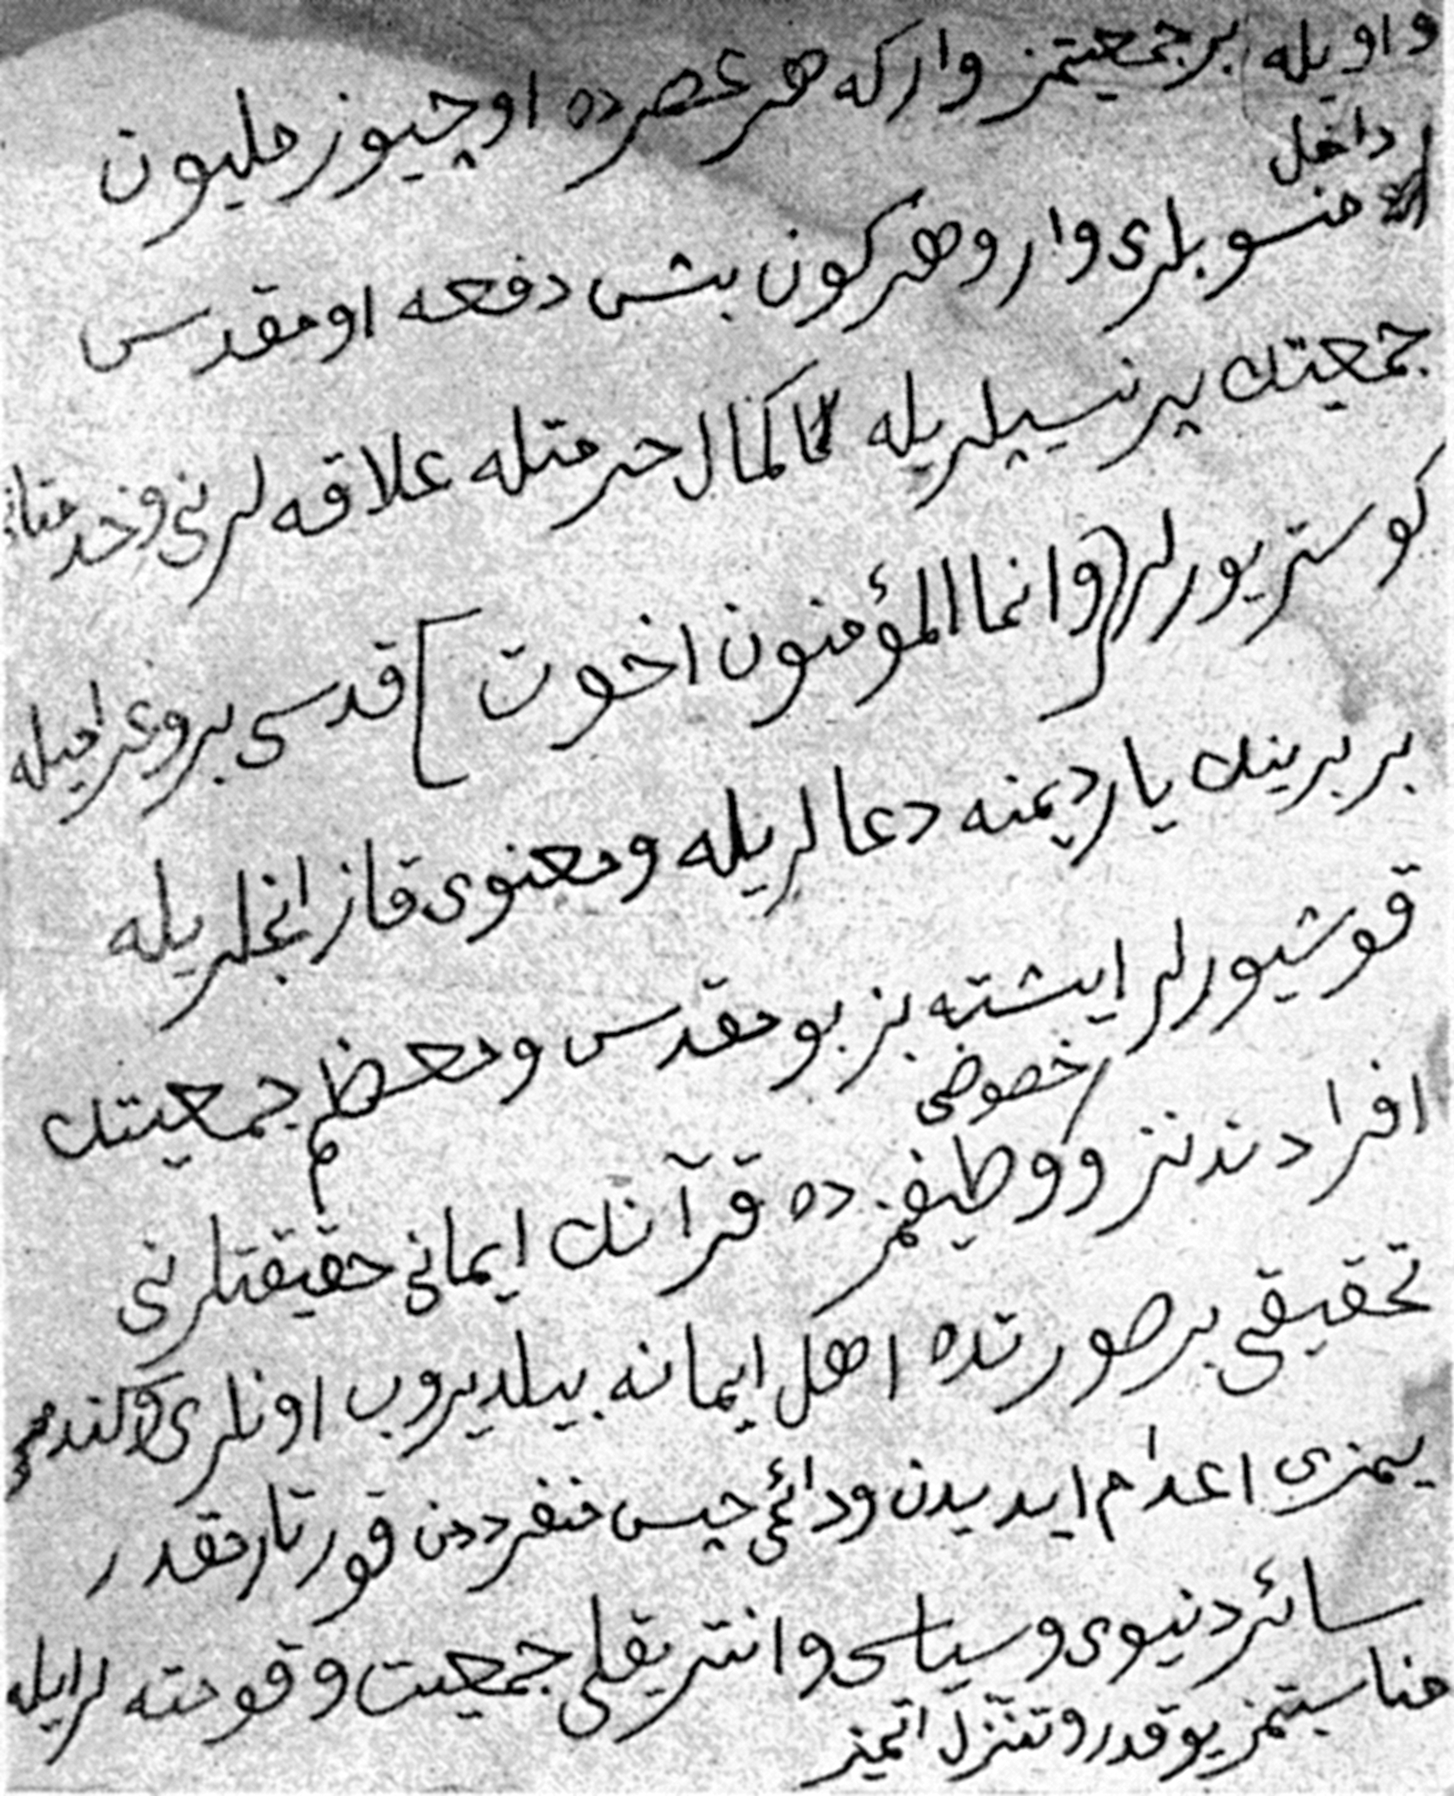 و اویله بر جمعیتمز وار که هر عصرده اوچیوز ملیون
داخل
منسوبلری وار و هر کون بش دفعه او مقدس
جمعیتك پرنسیپلریله کمال حرمتله علاقه لرنی و خدمتلرنی
کوستریورلر (وانما المؤمنون اخوت] قدسی پروغرامیله
بربرینك یاردیمنه دعالریله و معنوی قازانجلریله
قوشیورلر ایشته بز بو مقدس و معظم جمعیتك
خصوصی
افرادندنز و وظیفه مز ده قرآنك ایمانی حقیقتلرنی
تحقیقی بر صورتده اهل ایمانه بیلدیروب اونلری و کندمی
یمزی اعدام ابدیدن و دائمی حبس منفردمن قورتارمقدر
سائر دنیوی و سیاسی و انتریقلی جمعیت و قومته لر ایله
مناسبتمز یوقدر و تنزل اتمیز